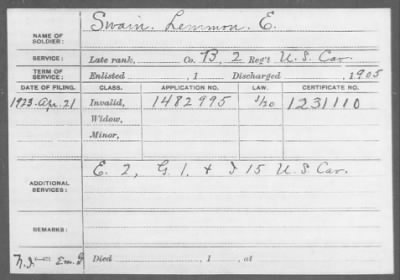 NAME OF SOLDIER: Swain, Lemmon. E.
SERVICE: Late rank, Co. B, 2 Reg't U.S. Cav.
TERM OF SERVICE: Enlisted , 1 Discharged , 1905
DATE OF FILING. CLASS. APPLICATION NO. LAW. CERTIFICATE NO.
1923. Apr. 21 Invalid, 1482995 4/20 1231110
Widow,
Minor,
ADDITIONAL SERVICES: E. 2, G. 1, & I 15 U.S Cav.
REMARKS:
Died , 1 , at